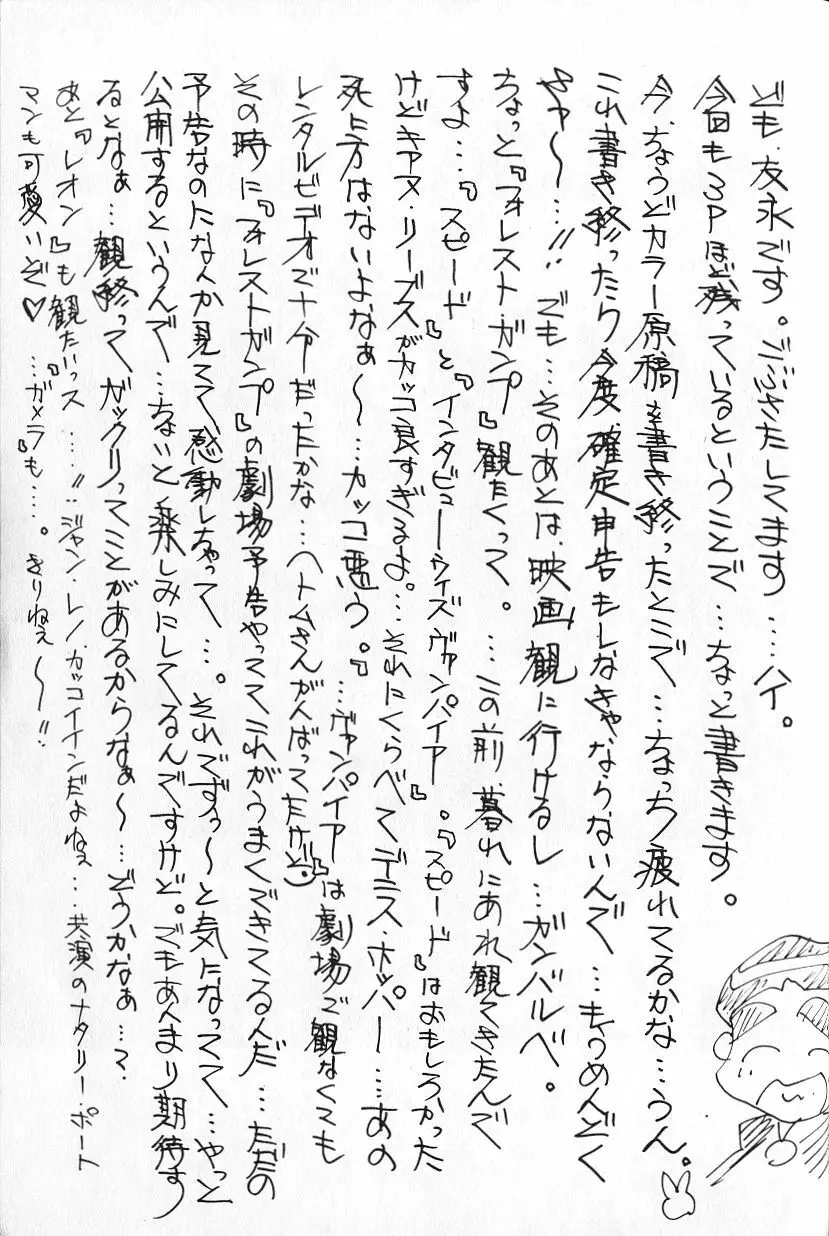 ども、友永です。ごぶさたしてます……ハイ。
今回も3Pほど残っているということで…ちょっと書きます。
今、ちょうどカラー原稿を書き終ったとこで…ちょっち疲れてるかな…うん。
これ書き終ったら今度、確定申告もしなきゃならないんで…もうめんどく
せァ〜…!! でも…そのあとは、映画観に行けるし…ガンバルベ。
ちょっと『フォレスト・ガンプ』観たくって。…この前暮れにあれ観てきたんで
すよ…『スピード』と『インタビューウィズヴァンパイア』。『スピード』はおもしろかった
けどキアヌ・リーブスがカッコ良すぎるよ。…それにくらべてデニス・ホッパー……あの
死に方はないよなぁ〜…カッコ悪う。…『ヴァンパイア』は劇場で観なくても
レンタルビデオで十分だったかな…へトムさんがんばってたけど
その時に『フォレストガンプ』の劇場予告やっててこれがうまくできてるんだ…ただの
予告なのになんか見てて、感動しちゃって…。それでずぅ〜と気になってて…やっと
公開するというんで…ちょいと楽しみにしてるんですけど。でもあんまり期待す
るとなぁ…観終ってガックリってことがあるからなぁ〜…どうかなぁ…て、
あと『レオン』も観たいっス……!! ジャン・レノ、カッコイインだよねぇ…共演のナタリー・ポート
マンも可愛いぞ♡…『ガメラ』も……。きりねぇ〜!!